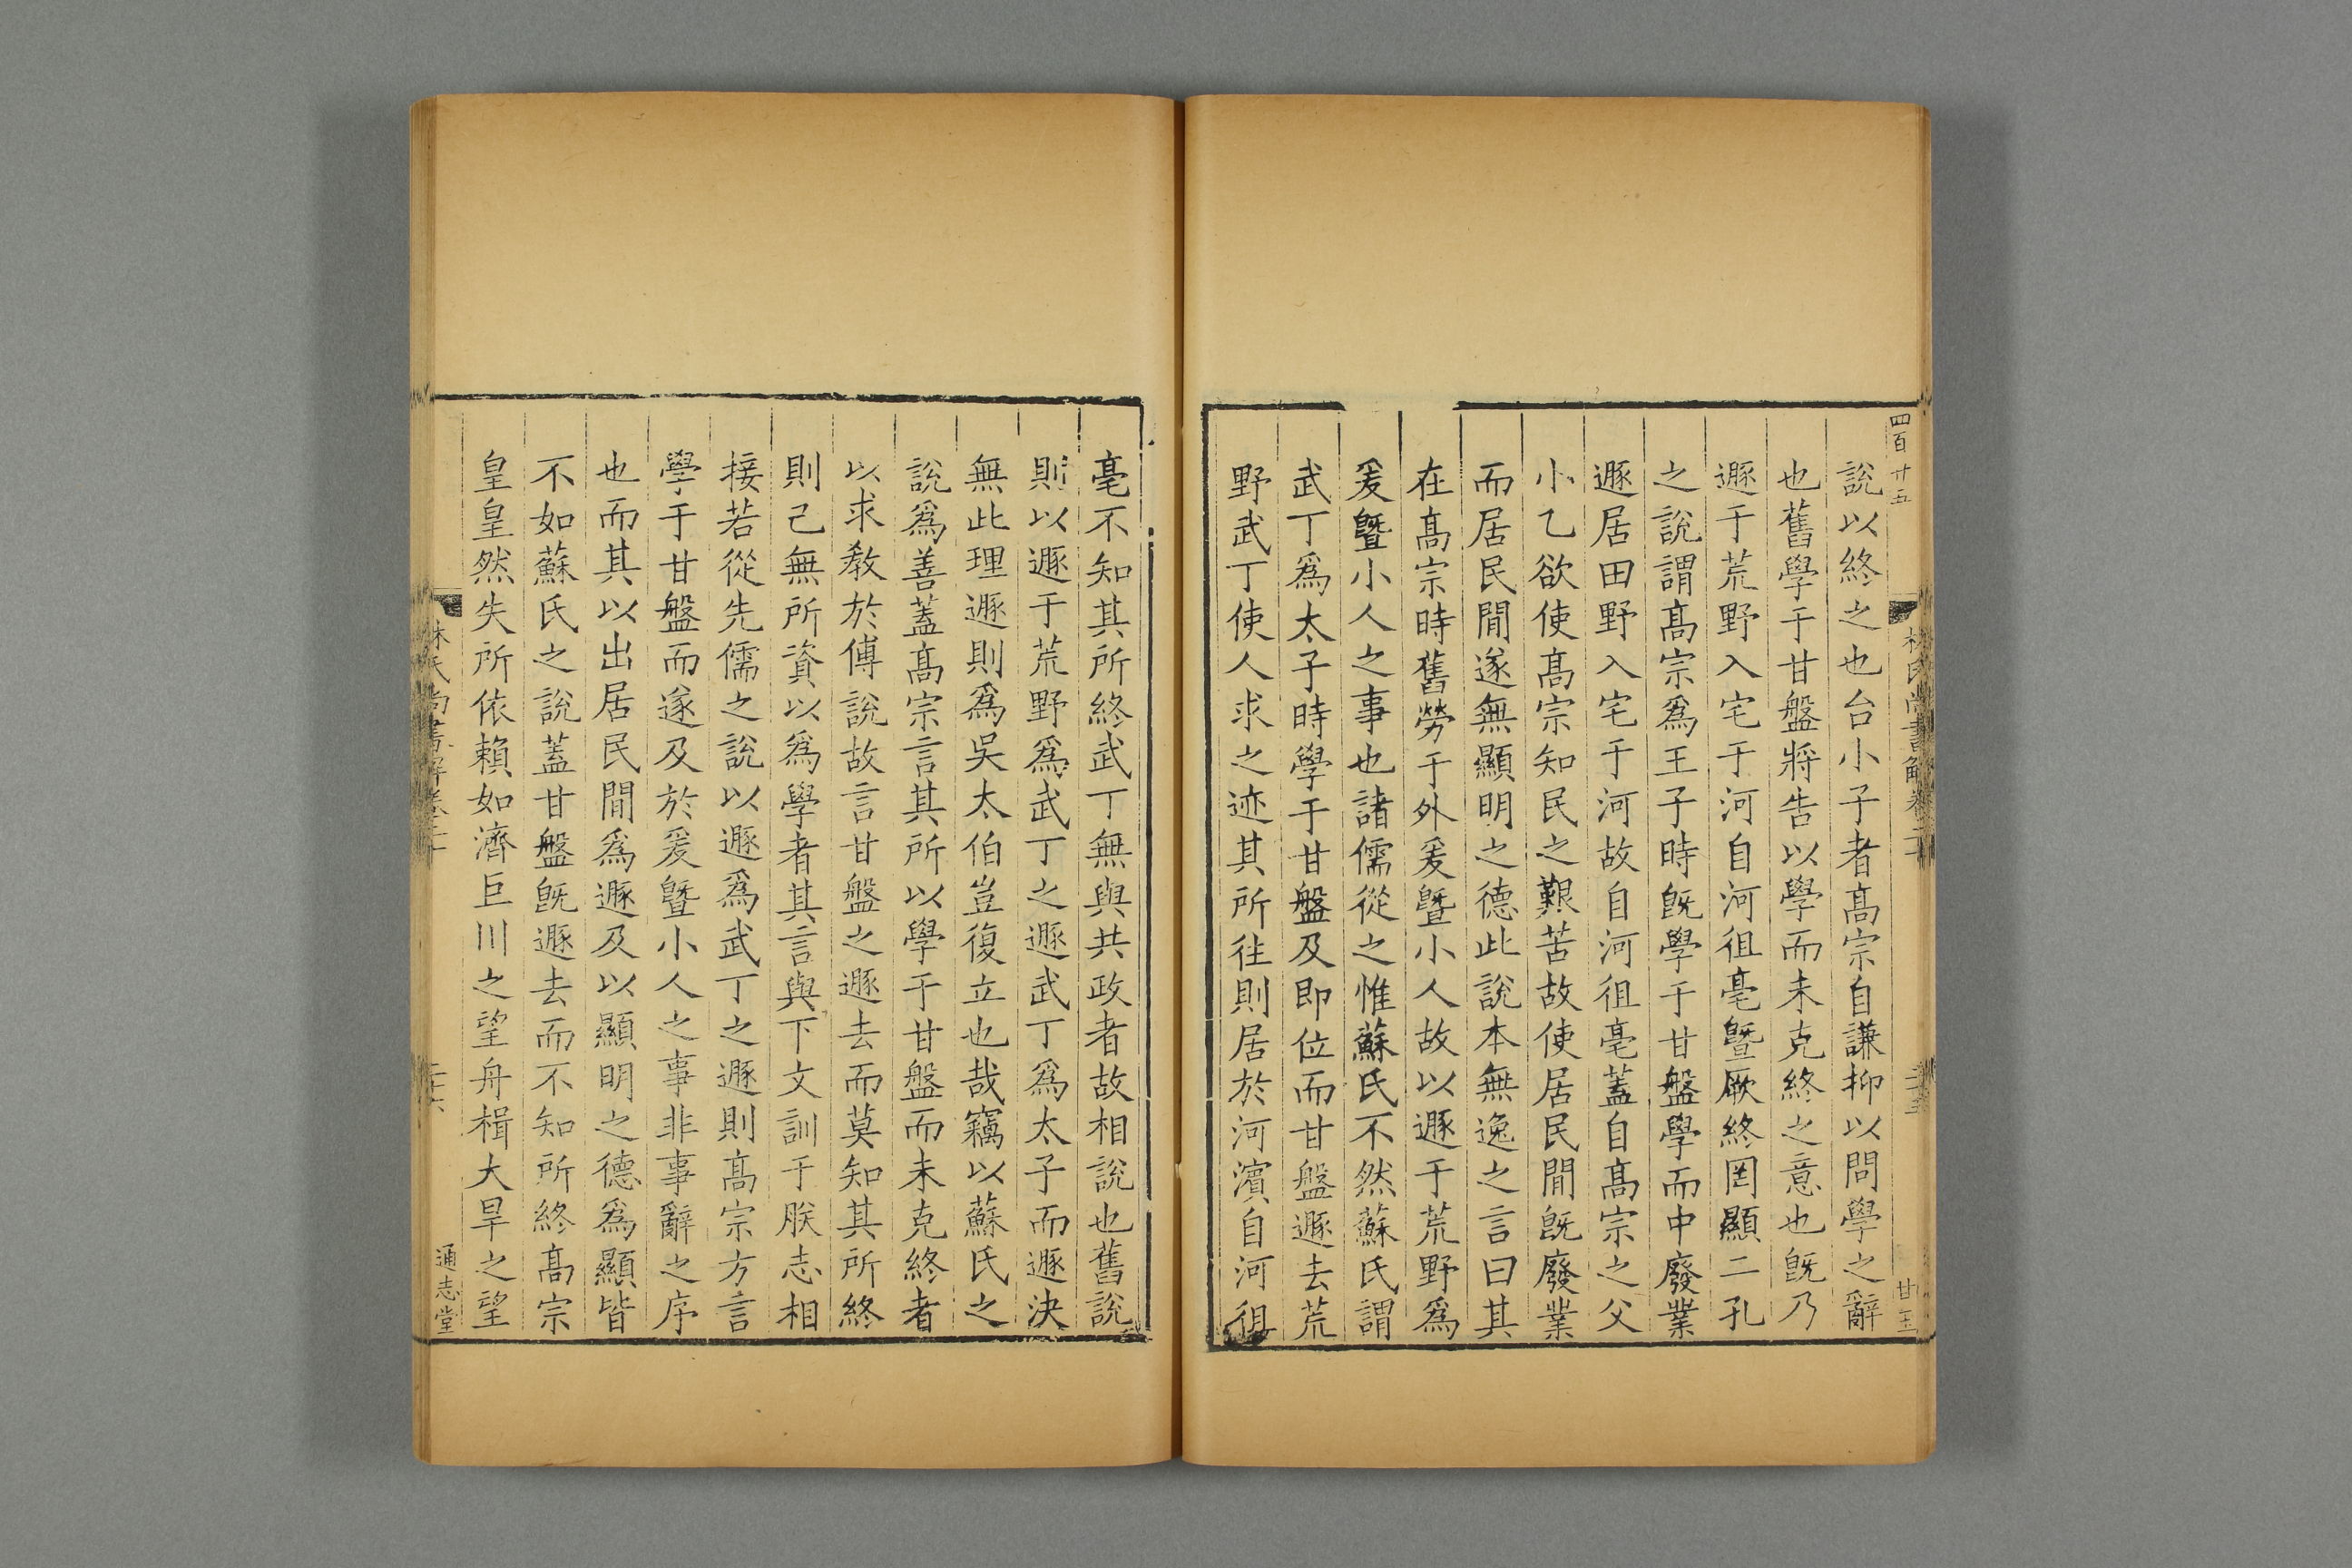 四百廿五
說以終之也台小子者髙宗自謙抑以問學之辭
也舊學于甘盤將告以學而未克終之意也旣乃
遯于荒野入宅于河自河徂亳暨厥終罔顯二孔
之說謂髙宗爲王子時旣學于甘盤學而中廢業
遯居田野入宅于河故自河徂亳蓋自髙宗之父
小乙欲使髙宗知民之艱苦故使居民間旣廢業
而居民間遂無顯明之德此說本無逸之言曰其
在髙宗時舊勞于外爰暨小人故以遯于荒野爲
爰暨小人之事也諸儒從之惟蘇氏不然蘇氏謂
武丁爲太子時學于甘盤及即位而甘盤遯去荒
野武丁使人求之迹其所往則居於河濱自河徂
亳不知其所終武丁無與共政者故相說也舊說
則以遯于荒野爲武丁之遯武丁爲太子而遯決
無此理遯則爲吳太伯豈復立也哉竊以蘇氏之
說爲善蓋髙宗言其所以學于甘盤而未克終者
以求教於傅說故言甘盤之遯去而莫知其所終
則己無所資以爲學者其言與下文訓于朕志相
接若從先儒之說以遯爲武丁之遯則髙宗方言
學于甘盤而遂及於爰暨小人之事非事辭之序
也而其以出居民間爲遯及以顯明之德爲顯皆
不如蘇氏之說蓋甘盤旣遯去而不知所終髙宗
皇皇然失所依賴如濟巨川之望舟楫大旱之望
林氏尚書解卷二十
通志堂